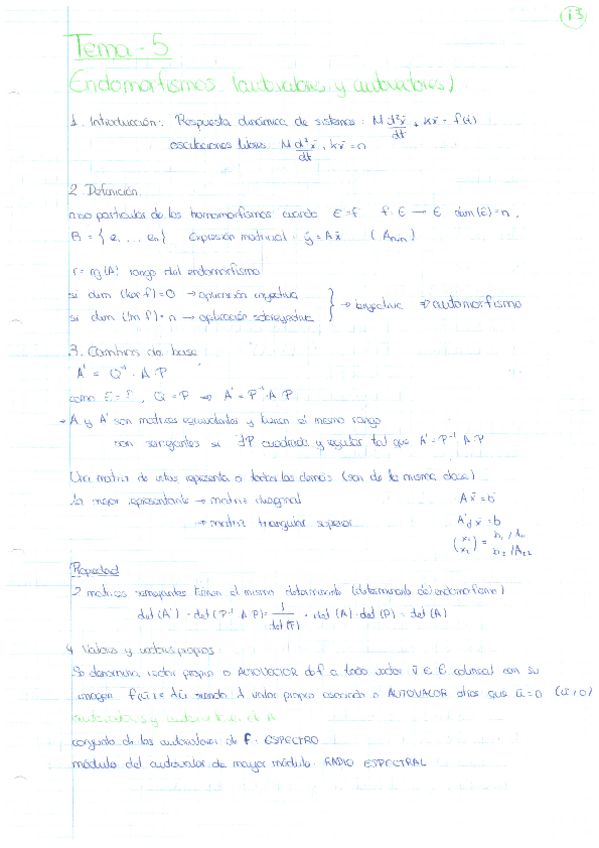 i3
Tema-5
Endomorfismos (autovalores y autovectores)
1. Introducción: Respuesta dinámica de sistemas: M d²x̄/dt + Kx̄ = f(t)
oscilaciones libres M d²x̄/dt + Kx̄ = 0
2. Definición
caso particular de los homomorfismos cuando E=F f: E → E dim(E)=n.
B = {e, ... en} Expresión matricial: ȳ = Ax̄ (Anxn)
r = rg(A) rango del endomorfismo
si dim (ker f)=0 → aplicación inyectiva
si dim (Im f)=n → aplicación sobreyectiva } → biyectiva ⇒ automorfismo
3. Cambios de base
A' = Q⁻¹ · A P
como E=F, Q=P → A' = P⁻¹ A P
→ A y A' son matrices equivalentes y tienen el mismo rango
son semejantes si ∃P cuadrada y regular tal que A' = P⁻¹ A P
Una matriz de estas representa a todas las demás (son de la misma clase)
La mejor representante → matriz diagonal Ax̄ = b
→ matriz triangular superior A'd x̄ = b
Propiedad
2 matrices semejantes tienen el mismo determinante (determinante del endomorfismo)
det(A') = det(P⁻¹ A P) = 1/det(P) · det(A) · det(P) = det(A)
4. Valores y vectores propios
Se denomina vector propio o AUTOVECTOR de f a todo vector ū ∈ E colineal con su
imagen f(ū) = λū siendo λ valor propio asociado o AUTOVALOR que ū=0 (ū≠0)
autovalores y
conjunto de los autovalores de f: ESPECTRO
módulo del autovalor de mayor módulo: RADIO ESPECTRAL